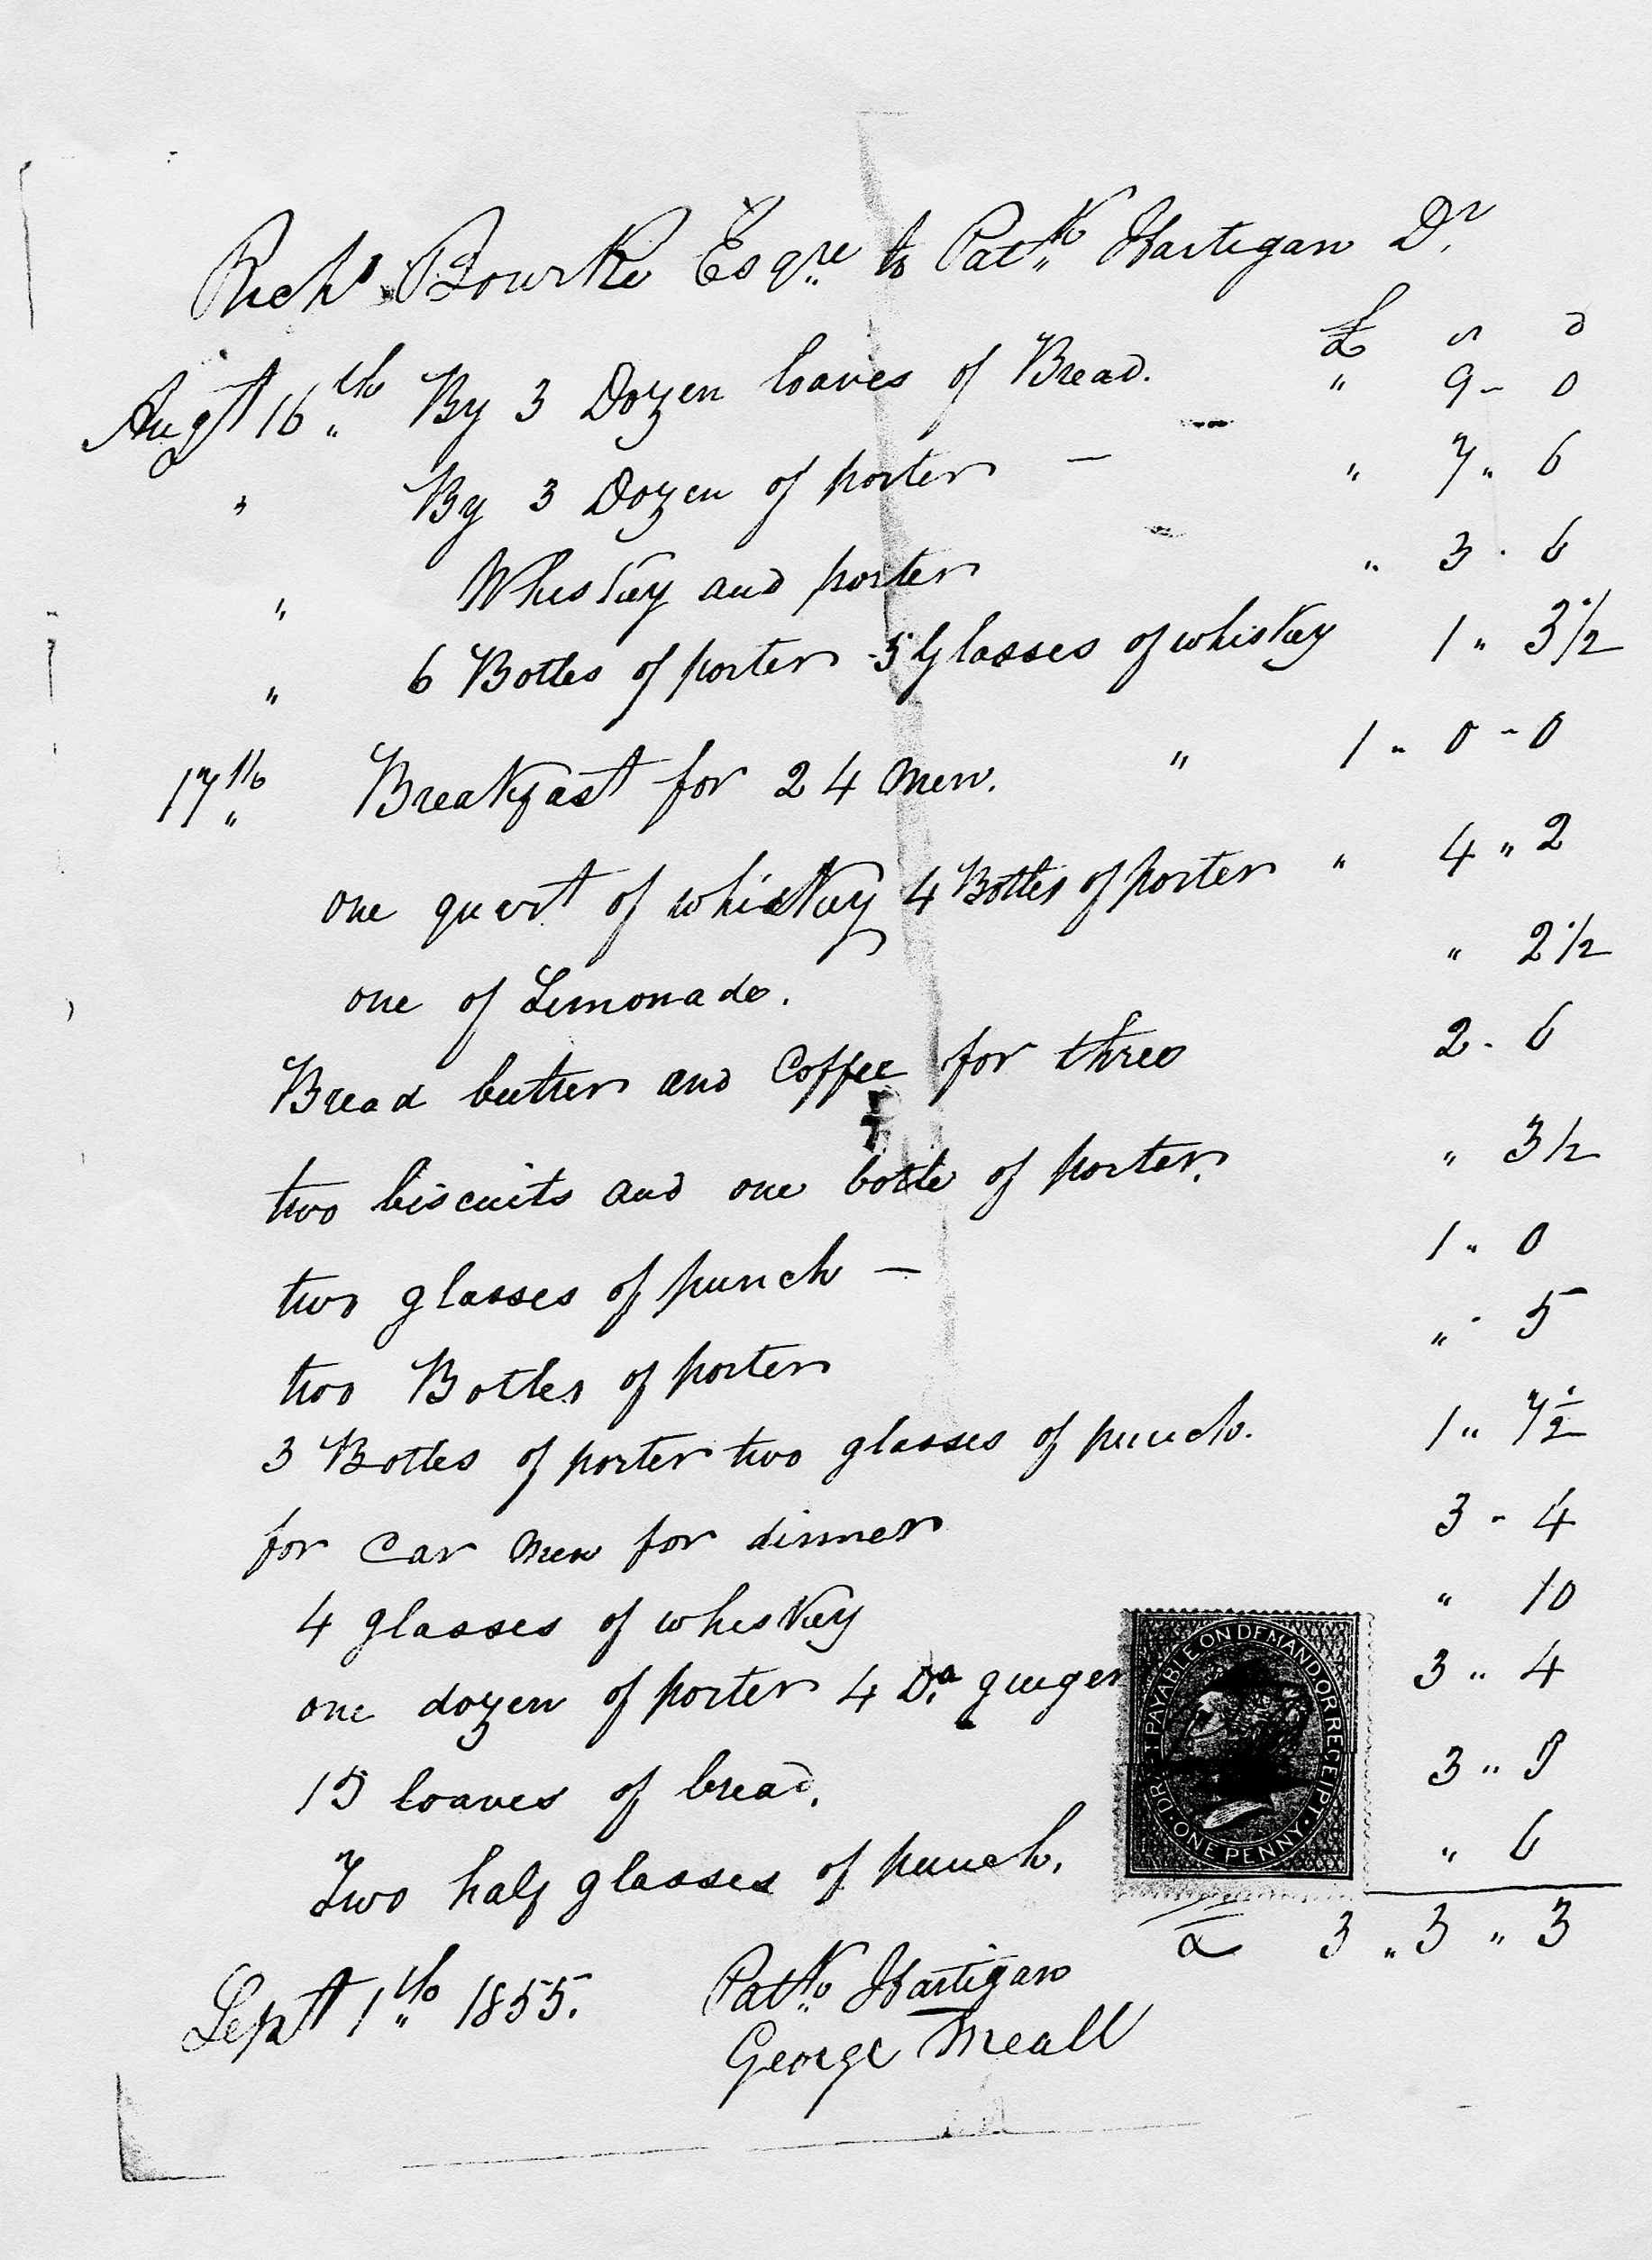 Richd Bourke Esqre to Patk Hartigan Dr
£ s d
Augt 16th By 3 Dozen loaves of Bread. " 9 - 0
" By 3 Dozen of porter — " 7 " 6
" Whiskey and porter " 3 . 6
" 6 Bottles of porter 5 Glasses of whiskey 1 " 3 1/2
17th Breakfast for 24 men. " 1 - 0 - 0
one quart of whiskey 4 Bottles of porter " 4 " 2
one of Lemonade. " 2 1/2
Bread butter and Coffee for three 2 - 6
two biscuits and one bottle of porter. " 3 1/2
two glasses of punch — 1 " 0
two Bottles of porter " 5
3 Bottles of porter two glasses of punch. 1 " 7 1/2
for Car men for dinner 3 - 4
4 glasses of whiskey " 10
one dozen of porter 4 Do ginger 3 " 4
15 loaves of bread. 3 " 9
Two half glasses of punch. " 6
DRAFT PAYABLE ON DEMAND OR RECEIPT · ONE PENNY ·
£ 3 " 3 " 3
Sept 1th 1855. Patk Hartigan
George Meall